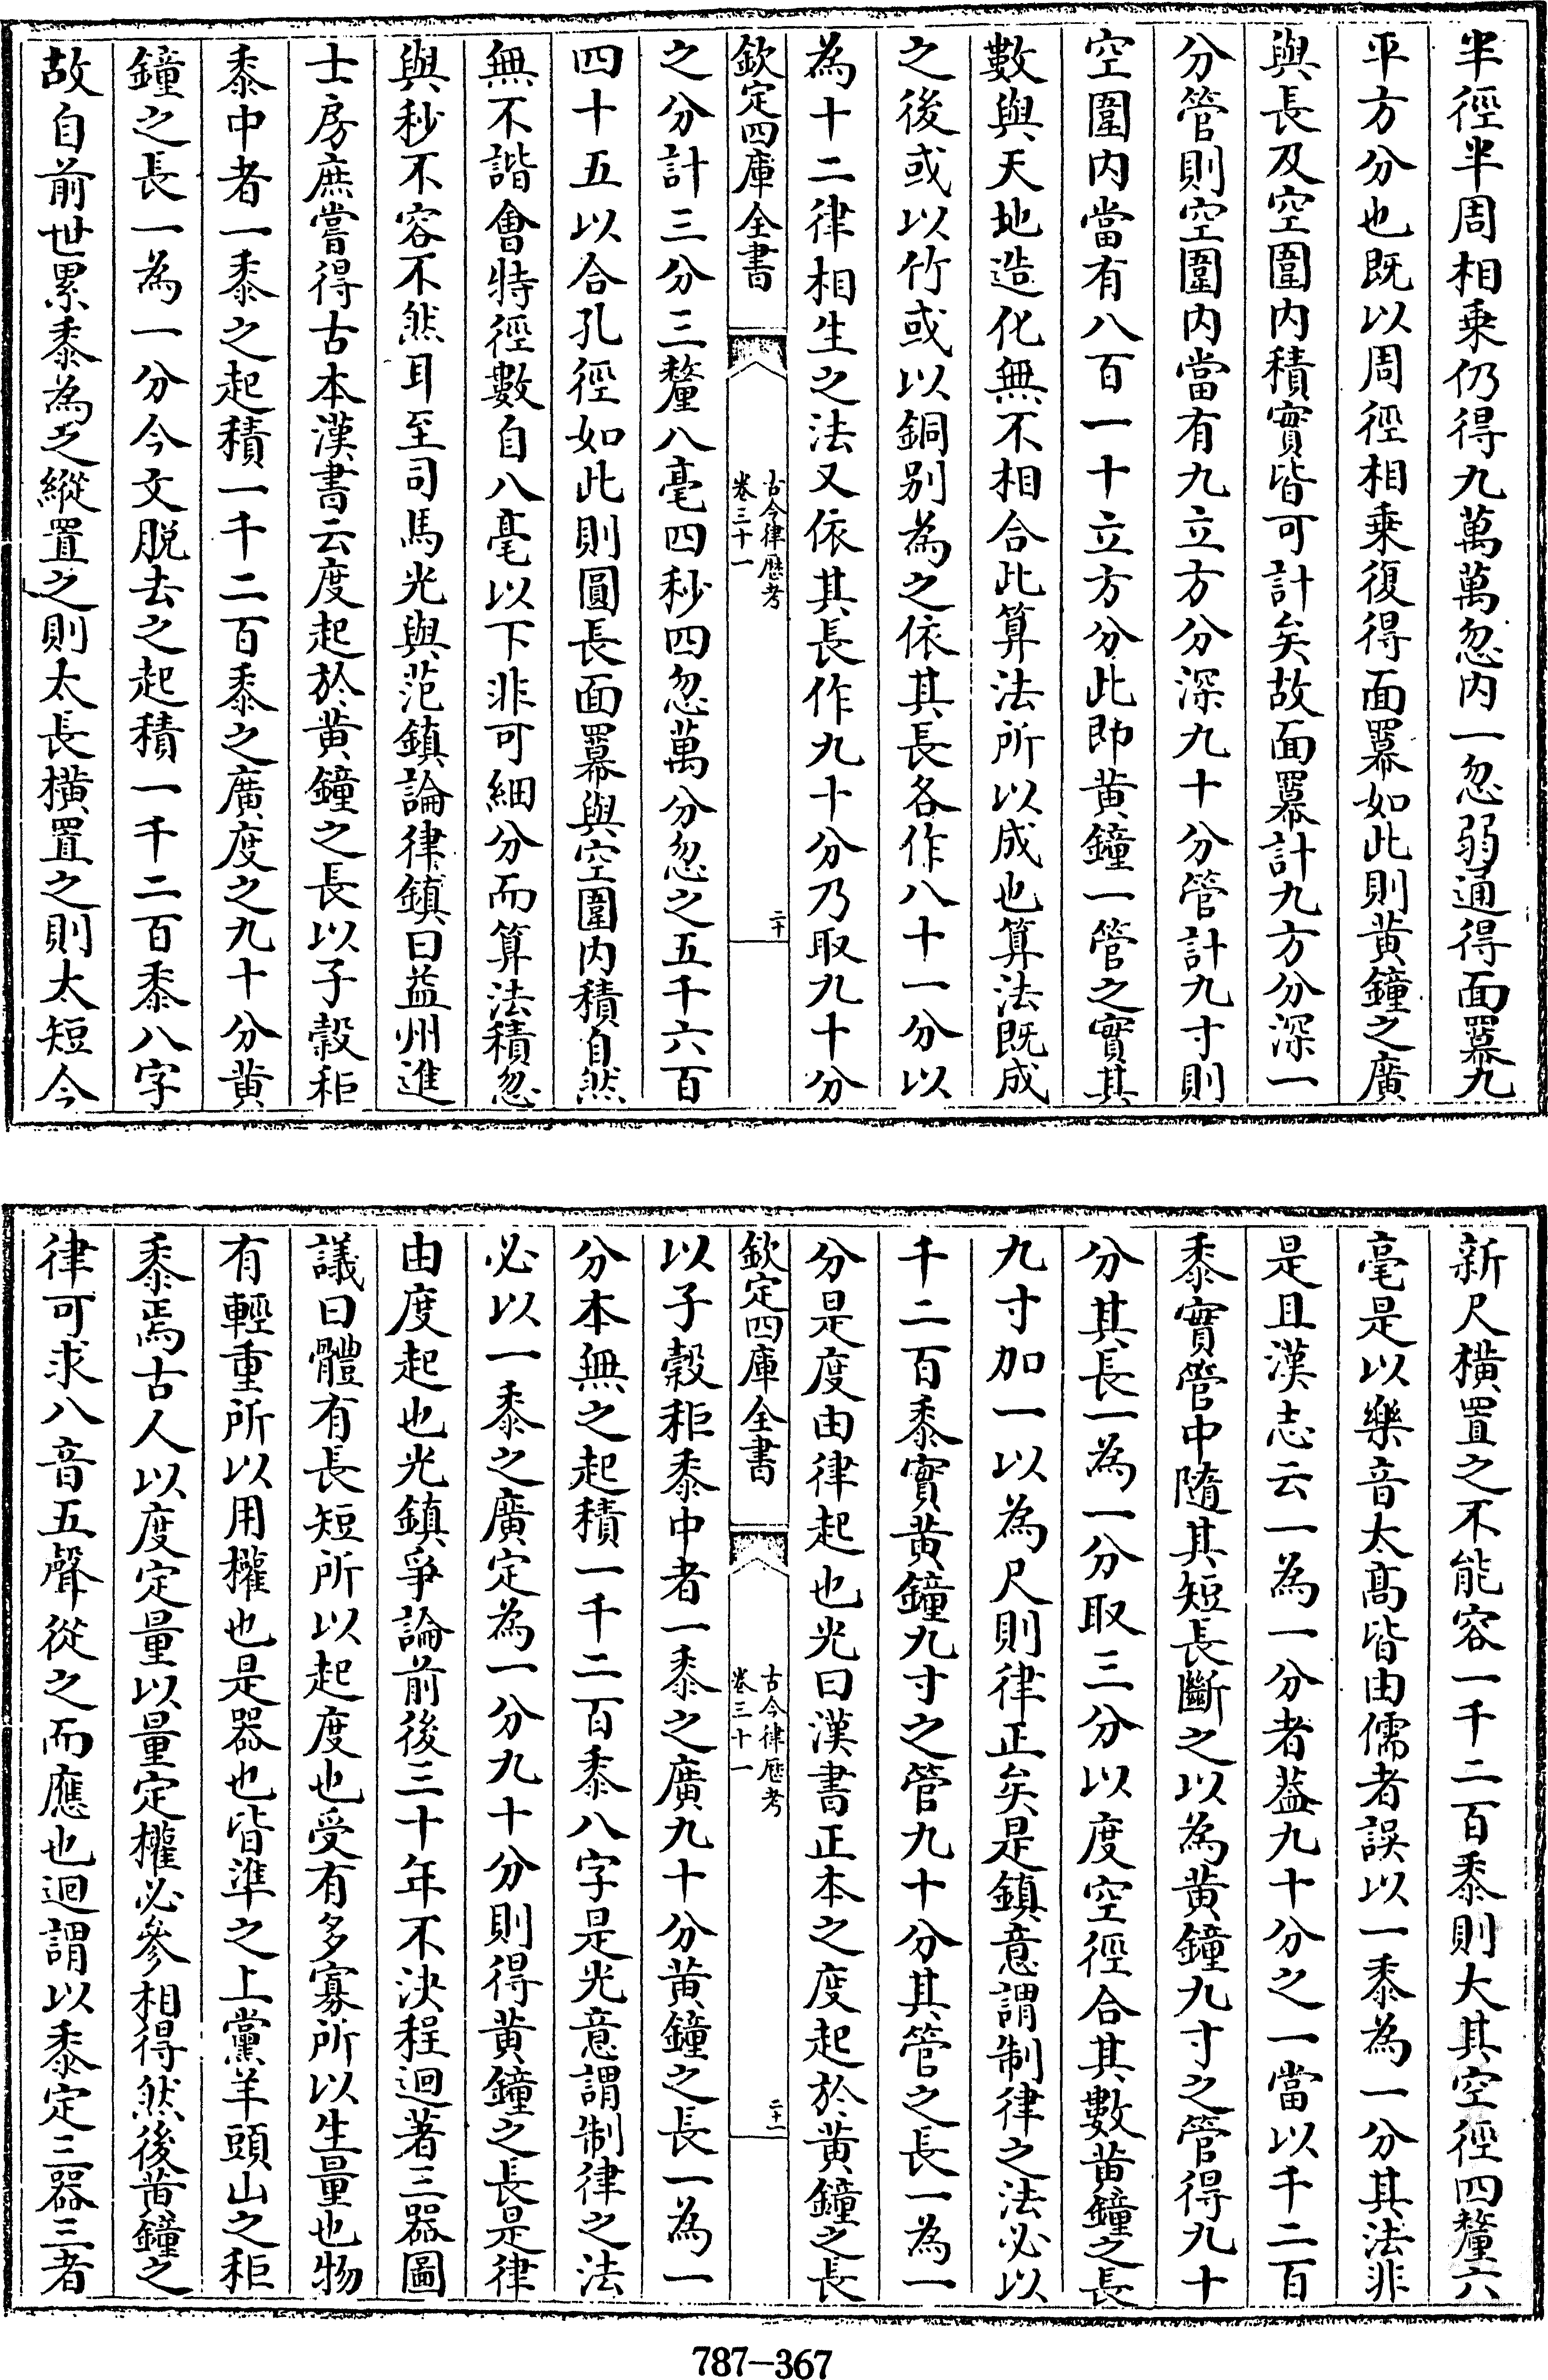 半徑半周相乗仍得九萬萬忽内一忽弱通得面羃九
平方分也既以周徑相乗復得面羃如此則黄鐘之廣
與長及空圍内積實皆可計矣故面羃計九方分深一
分管則空圍内當有九立方分深九十分管計九寸則
空圍内當有八百一十立方分此即黄鐘一管之實其
數與天地造化無不相合此算法所以成也算法既成
之後或以竹或以銅别為之依其長各作八十一分以
為十二律相生之法又依其長作九十分乃取九十分
欽定四庫全書
古今律歴考
卷三十一
二十
之分計三分三釐八毫四秒四忽萬分忽之五千六百
四十五以合孔徑如此則圓長面羃與空圍内積自然
無不諧會特徑數自八毫以下非可細分而算法積忽
與秒不容不然耳至司馬光與范鎮論律鎮曰益州進
士房庶嘗得古本漢書云度起於黄鐘之長以子榖秬
黍中者一黍之起積一千二百黍之廣度之九十分黄
鐘之長一為一分今文脱去之起積一千二百黍八字
故自前世累黍為之縱置之則太長横置之則太短今
新尺横置之不能容一千二百黍則大其空徑四釐六
毫是以樂音太髙皆由儒者誤以一黍為一分其法非
是且漢志云一為一分者葢九十分之一當以千二百
黍實管中隨其短長斷之以為黄鐘九寸之管得九十
分其長一為一分取三分以度空徑合其數黄鐘之長
九寸加一以為尺則律正矣是鎮意謂制律之法必以
千二百黍實黄鐘九寸之管九十分其管之長一為一
分是度由律起也光曰漢書正本之度起於黄鐘之長
欽定四庫全書
古今律歴考
卷三十一
二十一
以子榖秬黍中者一黍之廣九十分黄鐘之長一為一
分本無之起積一千二百黍八字是光意謂制律之法
必以一黍之廣定為一分九十分則得黄鐘之長是律
由度起也光鎮爭論前後三十年不決程迥著三器圖
議曰體有長短所以起度也受有多寡所以生量也物
有輕重所以用權也是器也皆準之上黨羊頭山之秬
黍焉古人以度定量以量定權必參相得然後黄鐘之
律可求八音五聲從之而應也迥謂以黍定三器三者
787-367